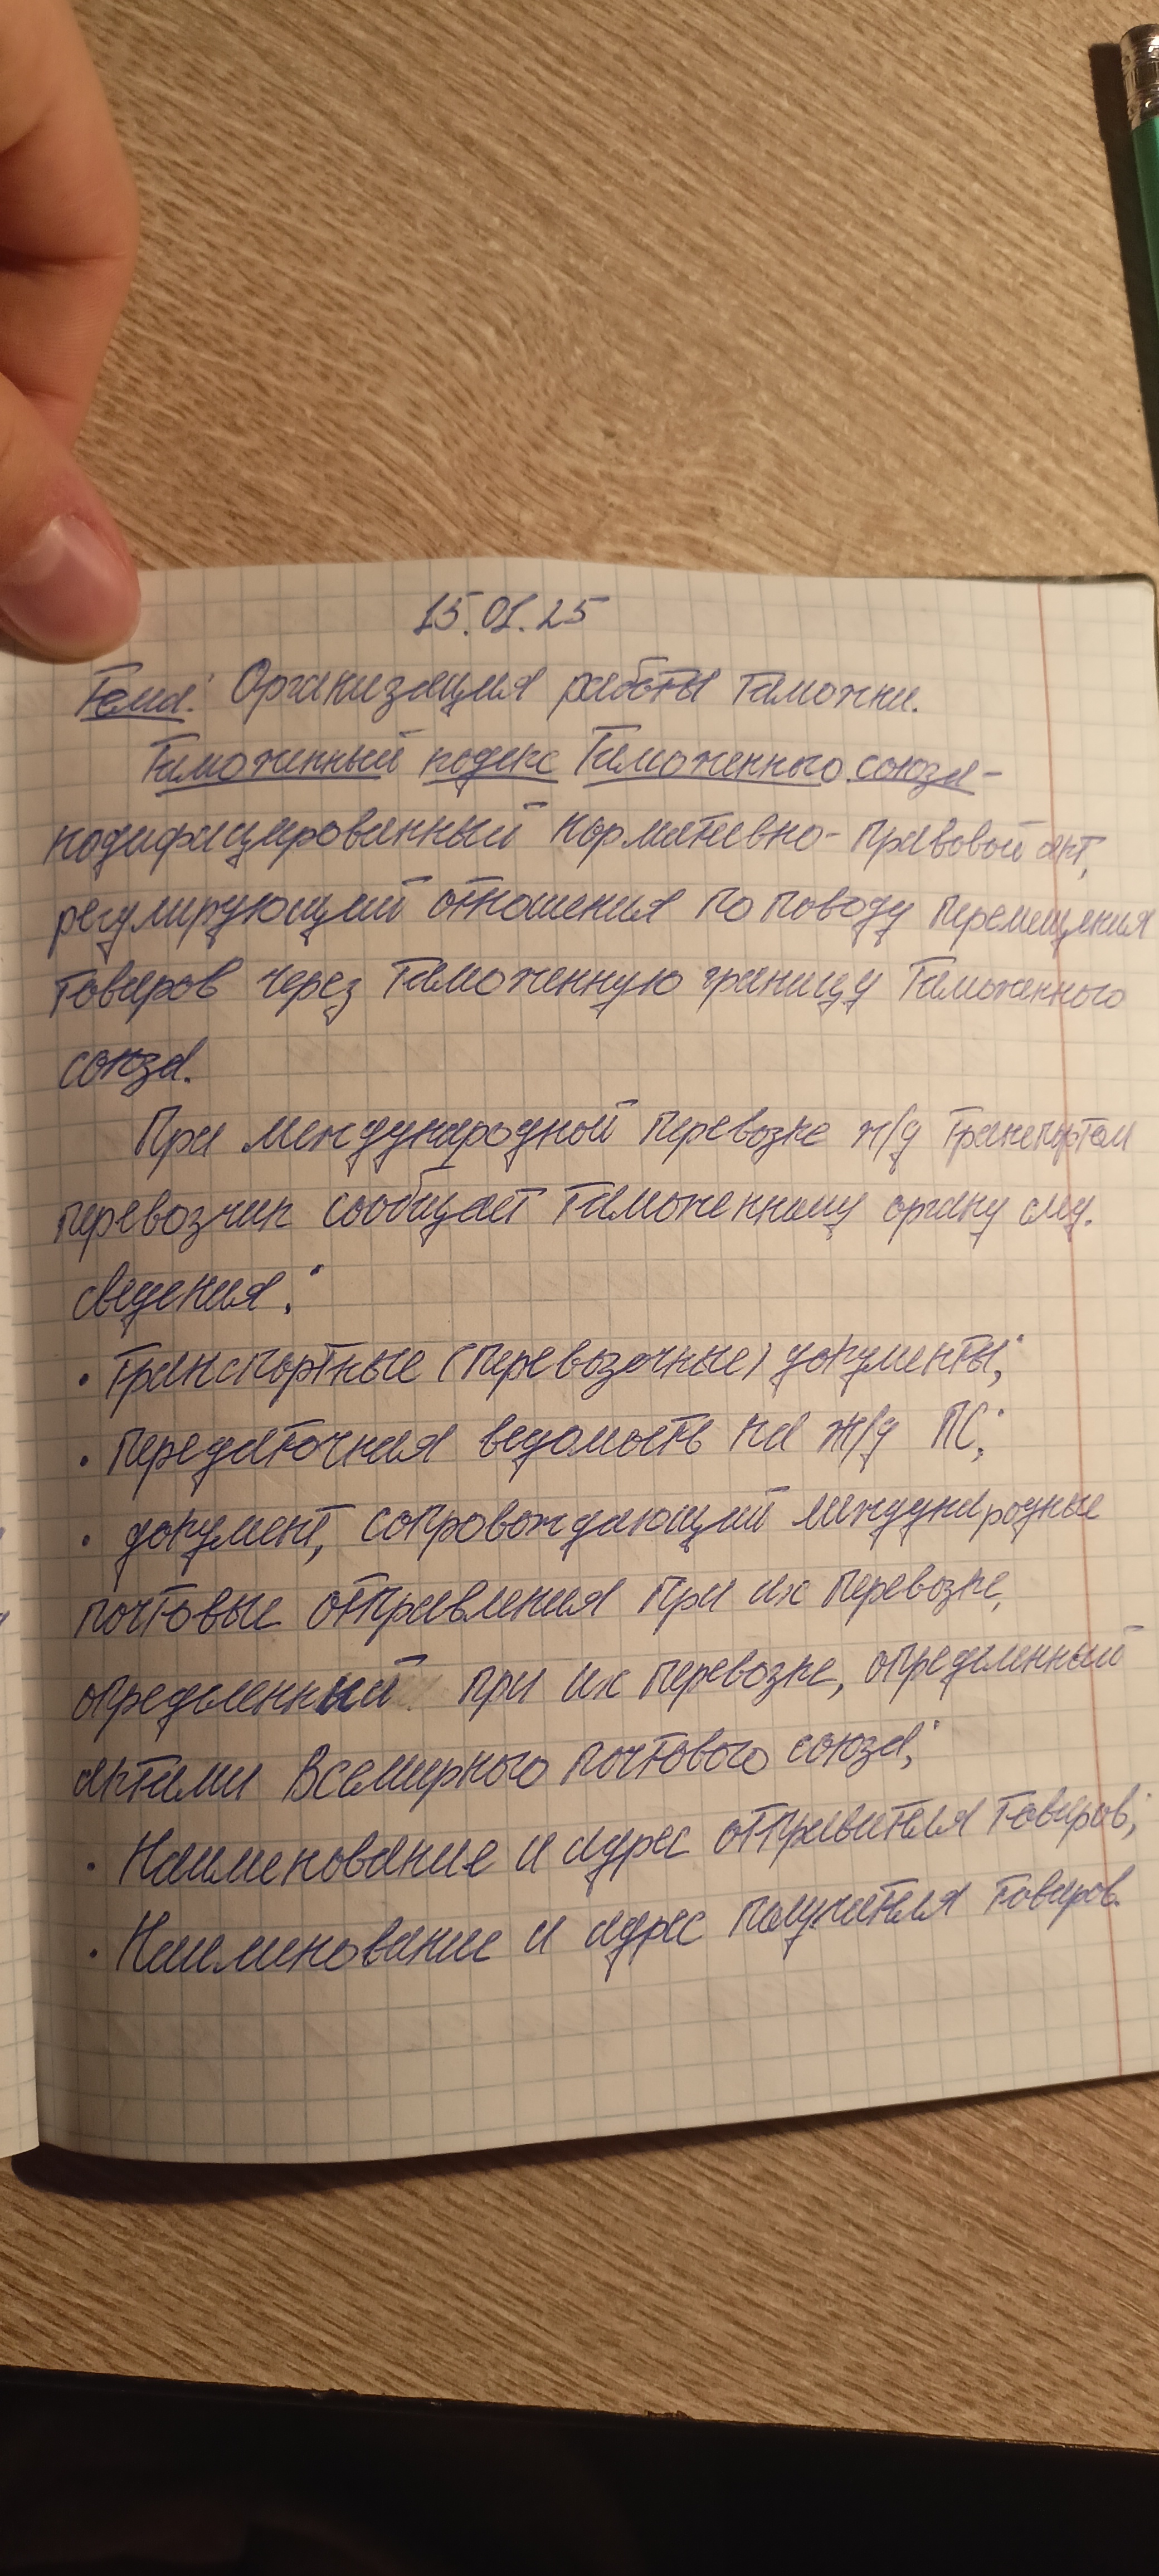 15.01.25
Тема: Организация работы таможни.
Таможенный кодекс Таможенного союза -
кодифицированный нормативно-правовой акт,
регулирующий отношения по поводу перемещения
товаров через таможенную границу Таможенного
союза.
При международной перевозке ж/д транспортом
перевозчик сообщает таможенному органу след.
сведения:
• транспортные (перевозочные) документы;
• передаточная ведомость на ж/д ПС;
• документ, сопровождающий международные
почтовые отправления при их перевозке,
определенный при их перевозке, определенный
актами Всемирного почтового союза;
• Наименование и адрес отправителя товаров;
• Наименование и адрес получателя товаров.